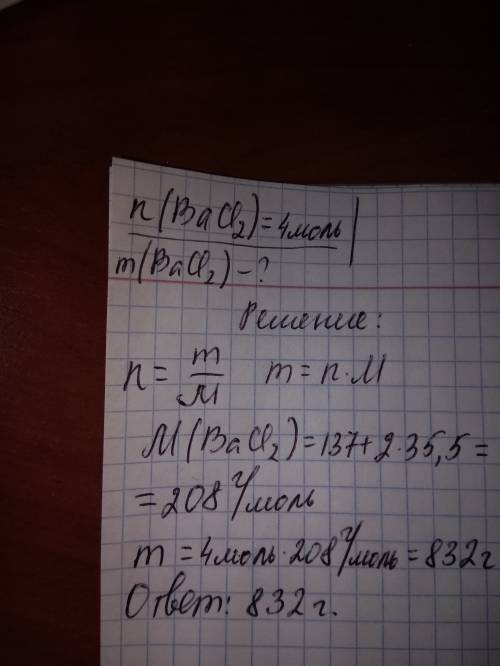 n(BaCl₂)=4моль
m(BaCl₂)-?
Решение:
n = m/M m = n·M
M(BaCl₂)=137+2·35,5=
=208 г/моль
m = 4моль·208 г/моль = 832г
Ответ: 832 г.